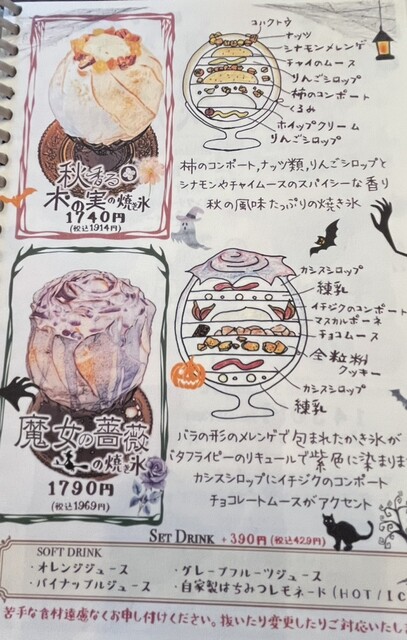 コハクトウ
ナッツ
シナモンメレンゲ
チャイのムース
りんごシロップ
柿のコンポート
くるみ
ホイップクリーム
りんごシロップ
秋香る
木の実の焼き氷
1740円
(税込1914円)
柿のコンポート,ナッツ類,りんごシロップと
シナモンやチャイムースのスパイシーな香り
秋の風味たっぷりの焼き氷
カシスシロップ
練乳
イチジクのコンポート
マスカルポーネ
チョコムース
全粒粉
クッキー
カシスシロップ
練乳
魔女の薔薇
の焼き氷
1790円
(税込1969円)
バラの形のメレンゲで包まれたかき氷が
バタフライピーのリキュールで紫色に染まりま
カシスシロップにイチジクのコンポート
チョコレートムースがアクセント
SET DRINK +390円(税込429円)
SOFT DRINK
・オレンジジュース ・グレープフルーツジュース
・パイナップルジュース ・自家製はちみつレモネード(HOT/IC
苦手な食材遠慮なくお申し付けください。抜いたり変更したりご対応いたしま